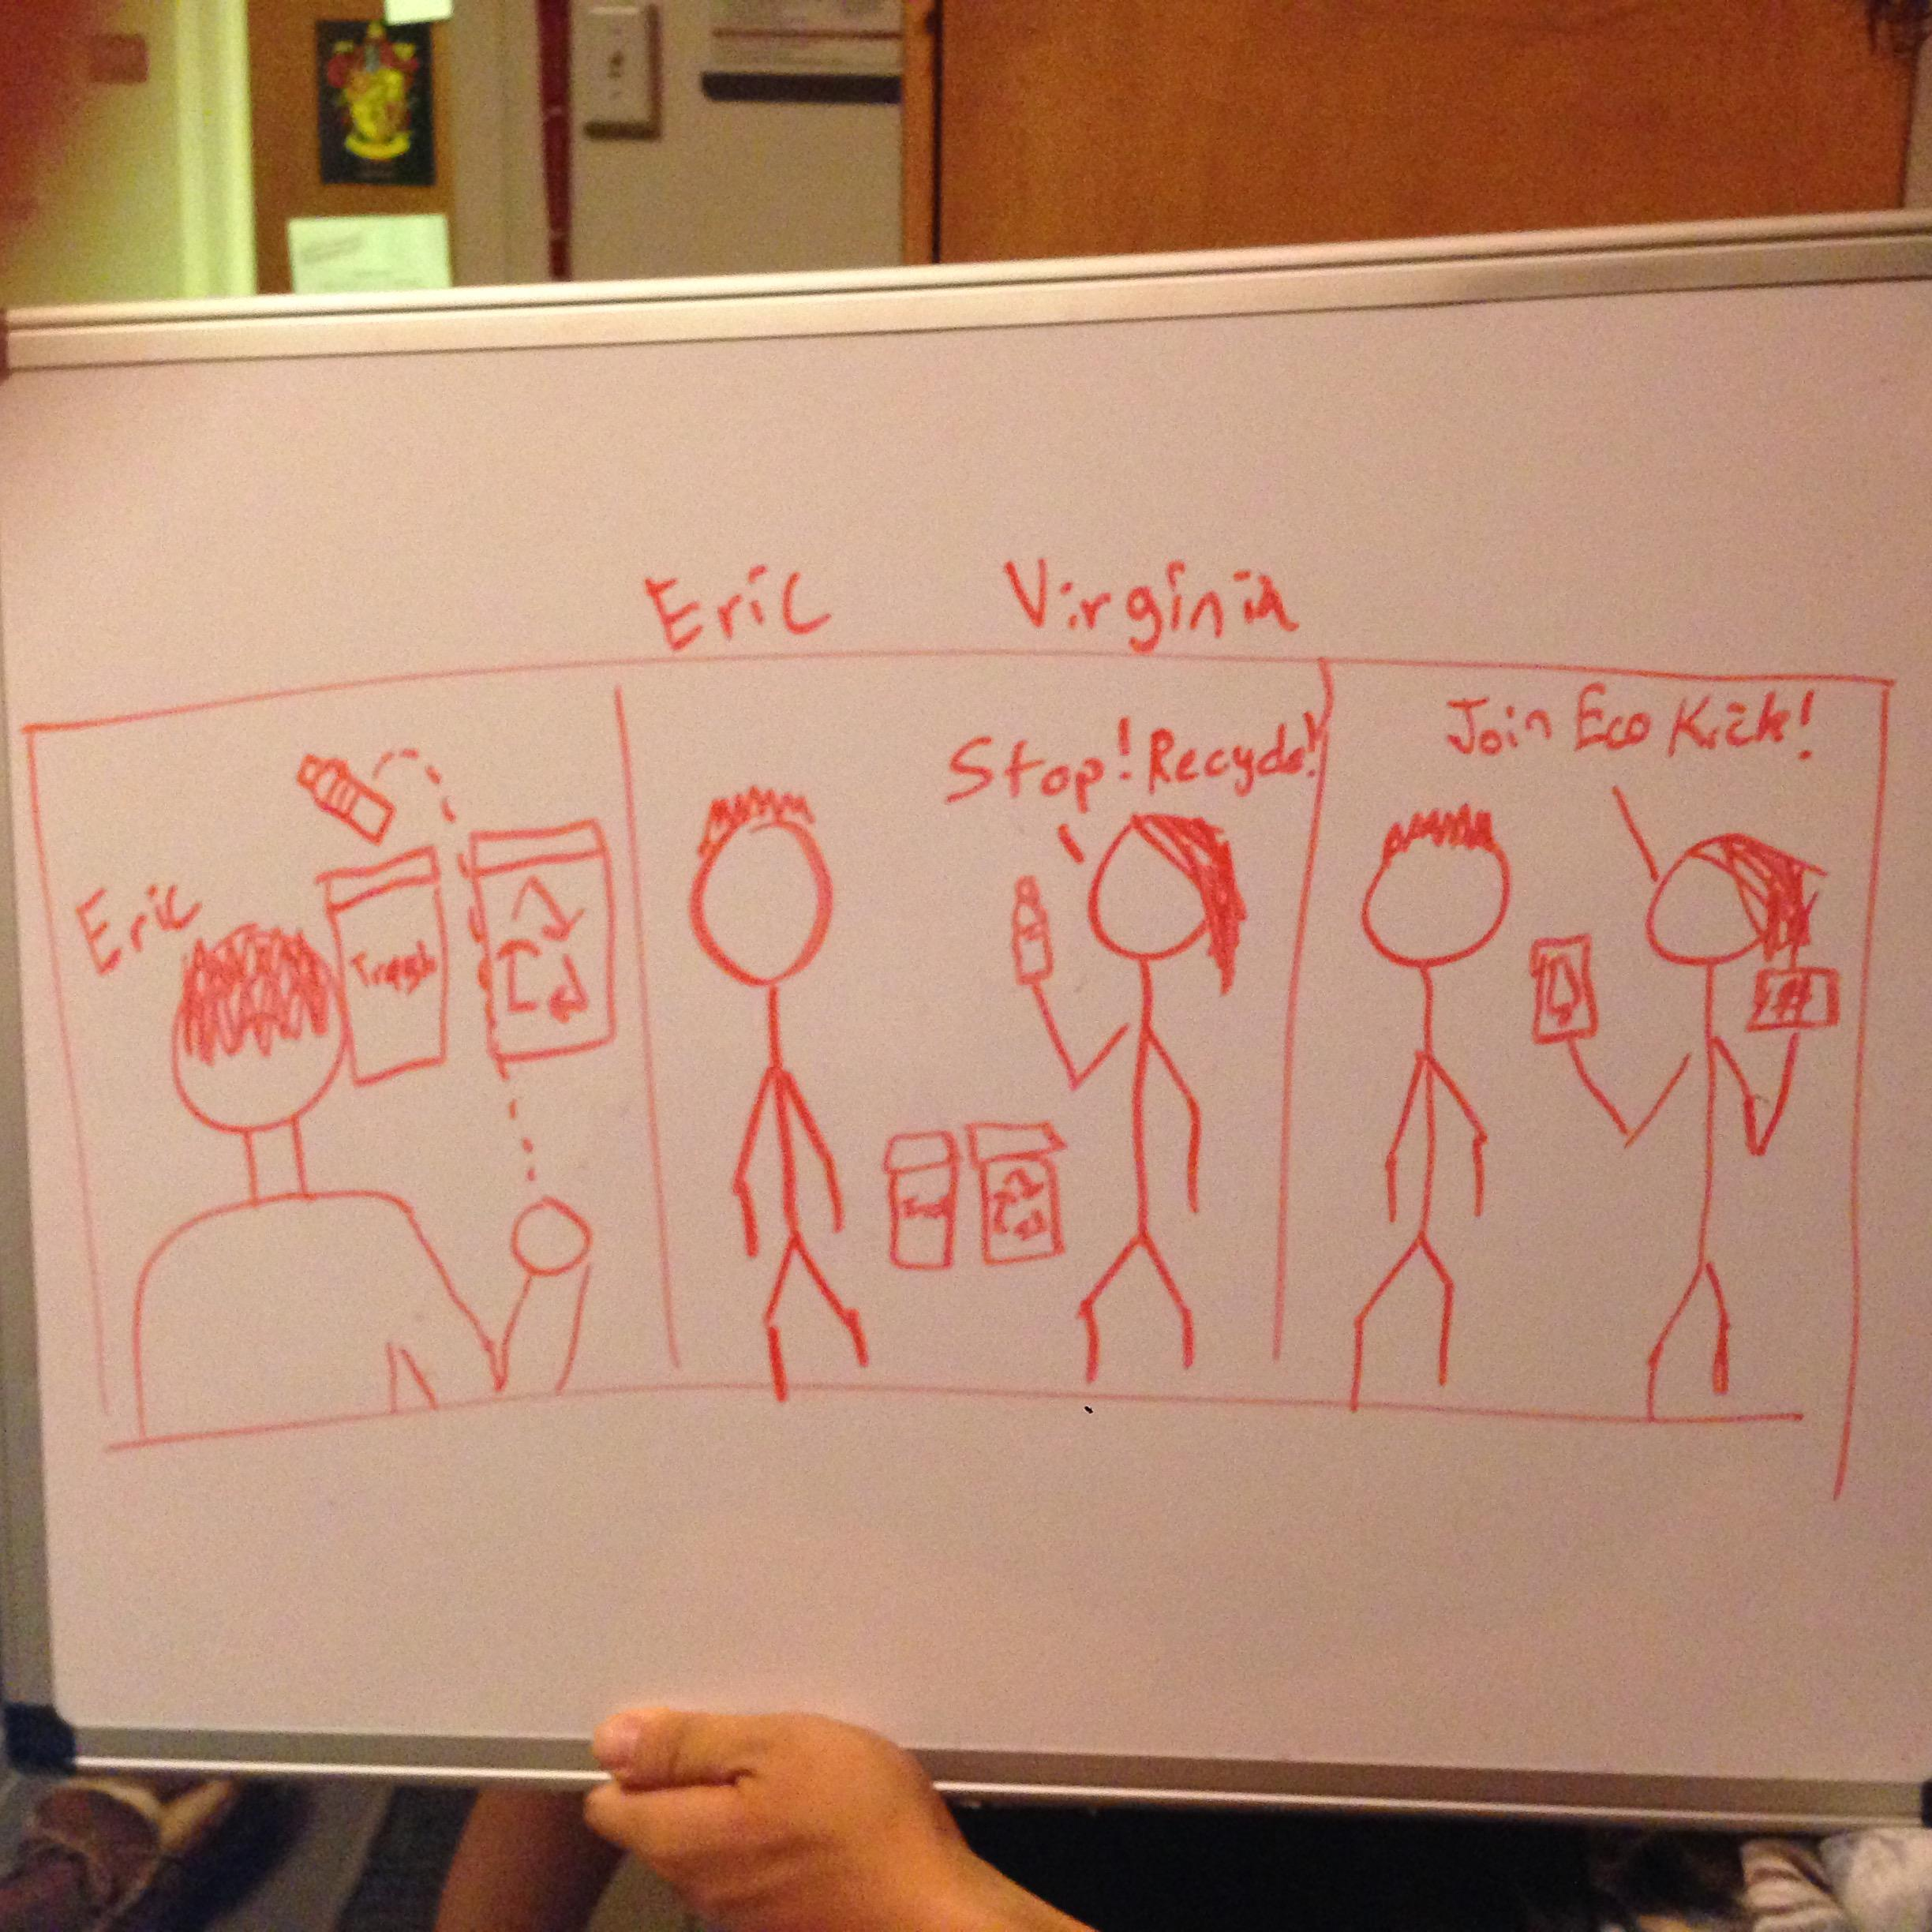 Eric Virginia
Eric
Trash
Stop! Recycle!
Join Eco Kick!